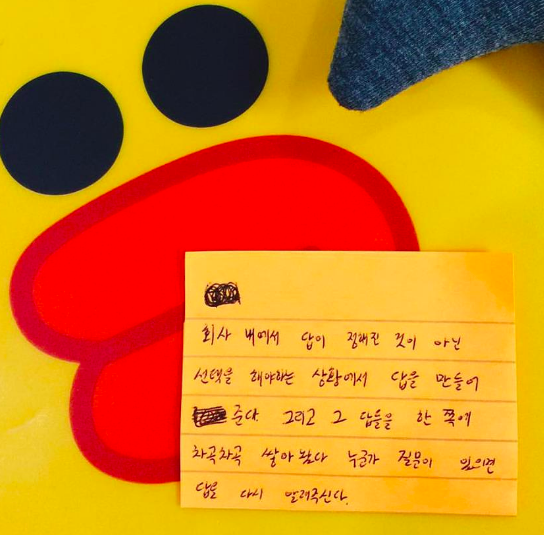 회사 내에서 답이 정해진 것이 아닌
선택을 해야하는 상황에서 답을 만들어
준다. 그리고 그 답들을 한 쪽에
차곡차곡 쌓아놨다 누군가 질문이 있으면
답을 다시 알려주신다.